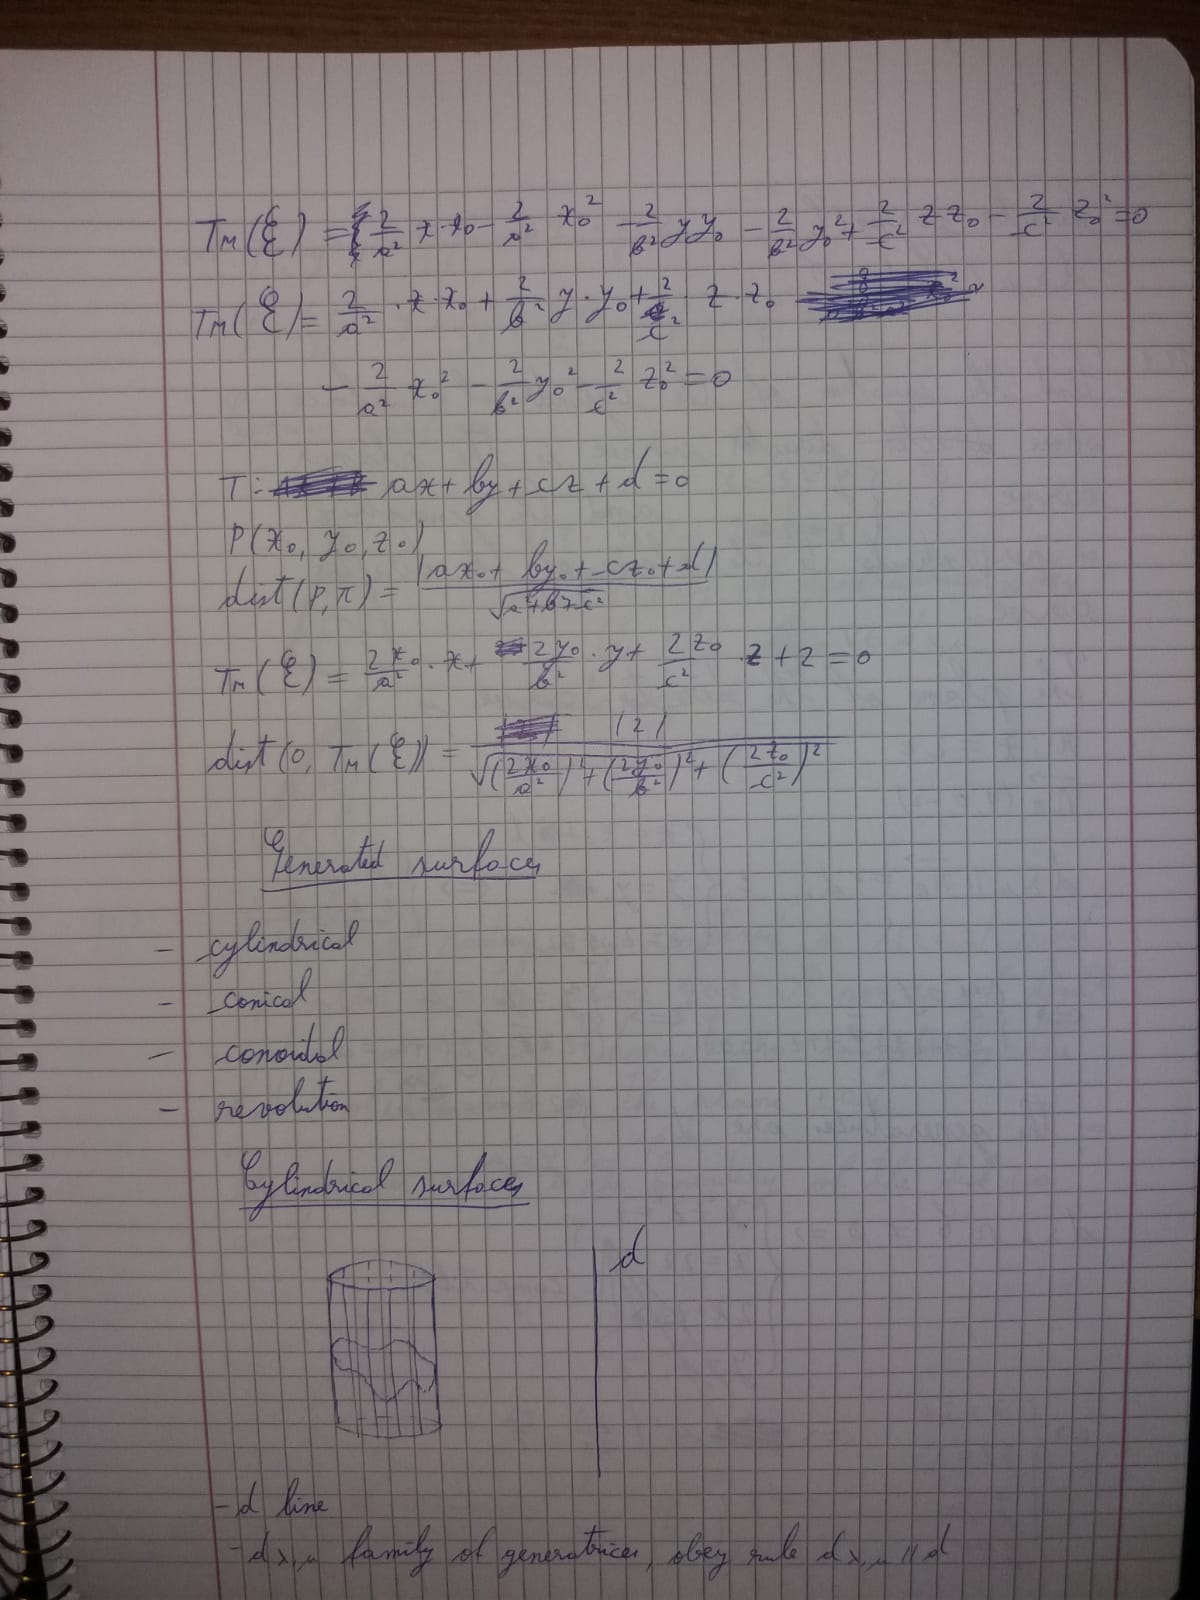 T_M(ℰ) = 2/a² x·x₀ - 2/a² x₀² - 2/b² y y₀ - 2/b² y₀² + 2/c² z z₀ - 2/c² z₀² = 0
T_M(ℰ) = 2/a² · x·x₀ + 2/b² y·y₀ + 2/c² z·z₀
- 2/a² x₀² - 2/b² y₀² - 2/c² z₀² = 0
π: ax + by + cz + d = 0
P(x₀, y₀, z₀)
dist(P, π) = |ax₀ + by₀ + cz₀ + d| / √(a² + b² + c²)
T_M(ℰ) = 2x₀/a² · x + 2y₀/b² · y + 2z₀/c² · z + 2 = 0
dist(0, T_M(ℰ)) = |2| / √((2x₀/a²)² + (2y₀/b²)² + (2z₀/c²)²)
Generated surfaces
- cylindrical
- conical
- conoidal
- revolution
Cylindrical surfaces
d
- d line
- d_λ,μ family of generatrices, obey rule d_λ,μ ∥ d